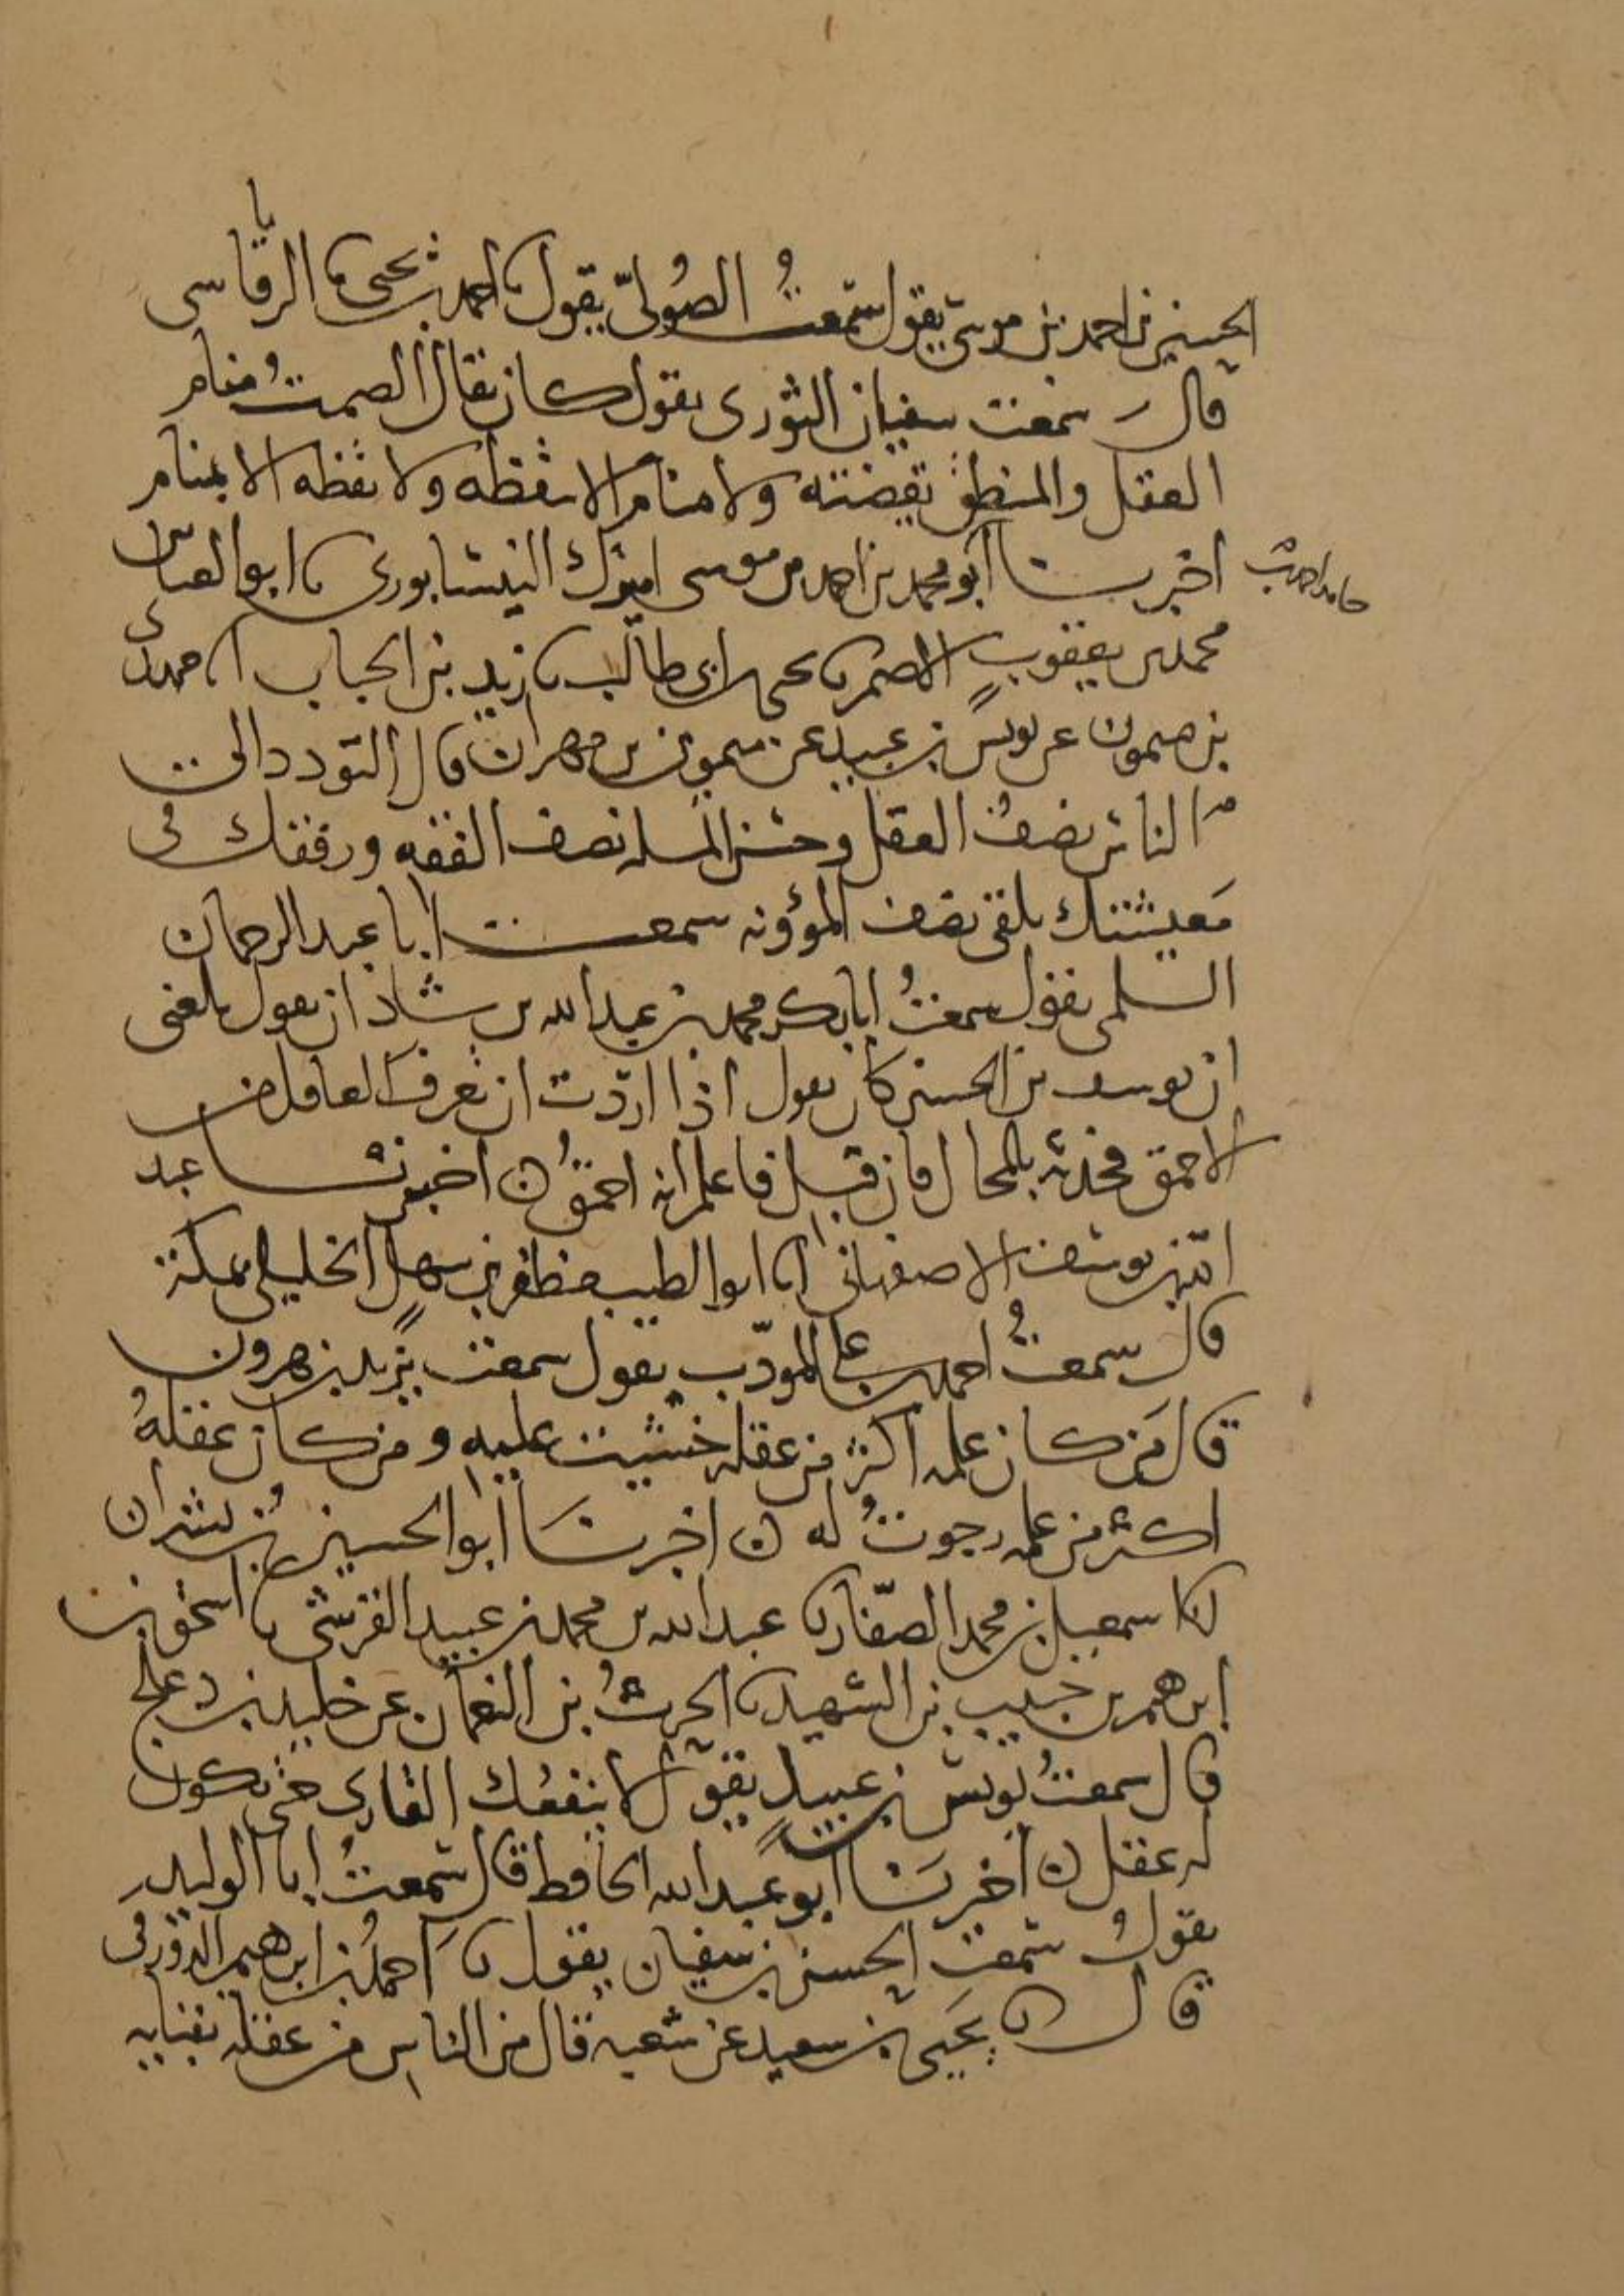 الحسين بن احمد بن موسى يقول سمعتُ الصُوليّ يقول نا احمد بن يحيى نا الرقاسى
قال سمعت سفيان الثورى يقول كان يقال الصمتُ منام
العقل والمنطق يقضته ولا منام الا بيقظه ولا يقظه الا بمنام
اخبرنا ابو محمد بن احمد بن موسى النيسابورى نا ابو العباس
حامد احمد بن
محمد بن يعقوب الاصم نا يحيى بن ابى طالب نا زيد بن الحباب
بن ميمون عن يونس بن عبيد عن ميمون بن مهران قال التودد الى
الناس نصف العقل وحسن المسله نصف الفقه ورفقك فى
معيشتك يلقى نصف المؤونه سمعت ابا عبد الرحمان
السلمى يقول سمعتُ ابا بكر محمد بن عبد الله بن شاذان يقول بلغنى
ان يوسف بن الحسين كان يقول اذا اردت ان تعرف العاقل من
الاحمق فحدثه بالمحال فان قبل فاعلم انه احمقُ ن اخبرنا عبد
الله بن يوسف الاصفهانى انا ابو الطيب مظفر بن سهل الخليلى بمكة
قال سمعتُ احمد بن على المودّب يقول سمعت يزيد بن هرون
قال مَن كان علمه اكثر من عقله خشيت عليه ومن كان عقلهُ
اكثر من علمه رجوتُ له ن اخبرنا ابو الحسين بن بشران
انا اسمعيل بن محمد الصفّار نا عبد الله بن محمد بن عبيد القرشى نا اسحق بن
ابرهيم بن حبيب بن الشهيد نا الحرثُ بن النعمان عن خليد بن دعلج
قال سمعتُ يونس بن عبيد يقول لا ينفعُك القارى حتى يكون
له عقل ن اخبرنا ابو عبد الله الحافظ قال سمعتُ ابا الوليد
يقول سمعت الحسن بن سفيان يقول نا احمد بن ابرهيم الدورقى
قال نا يحيى بن سعيد عن شعبه قال من الناس من عقله بفنايه